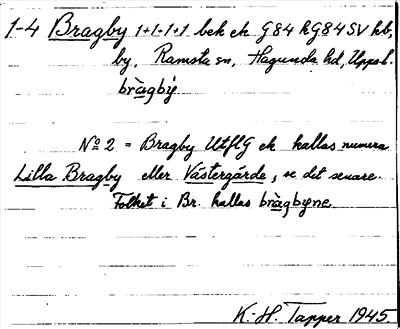 1-4 Bragby 1+1-1+1 bek ek G84 kG84SV kb,
by, Ramsta sn, Hagunda hd, Uppsl.
bràgbý
No 2 = Bragby UtflG ek kallas numera
Lilla Bragby eller Västergärde, se det senare.
Folket i Br. kallas bràgbyne
K.-H. Tapper 1945.